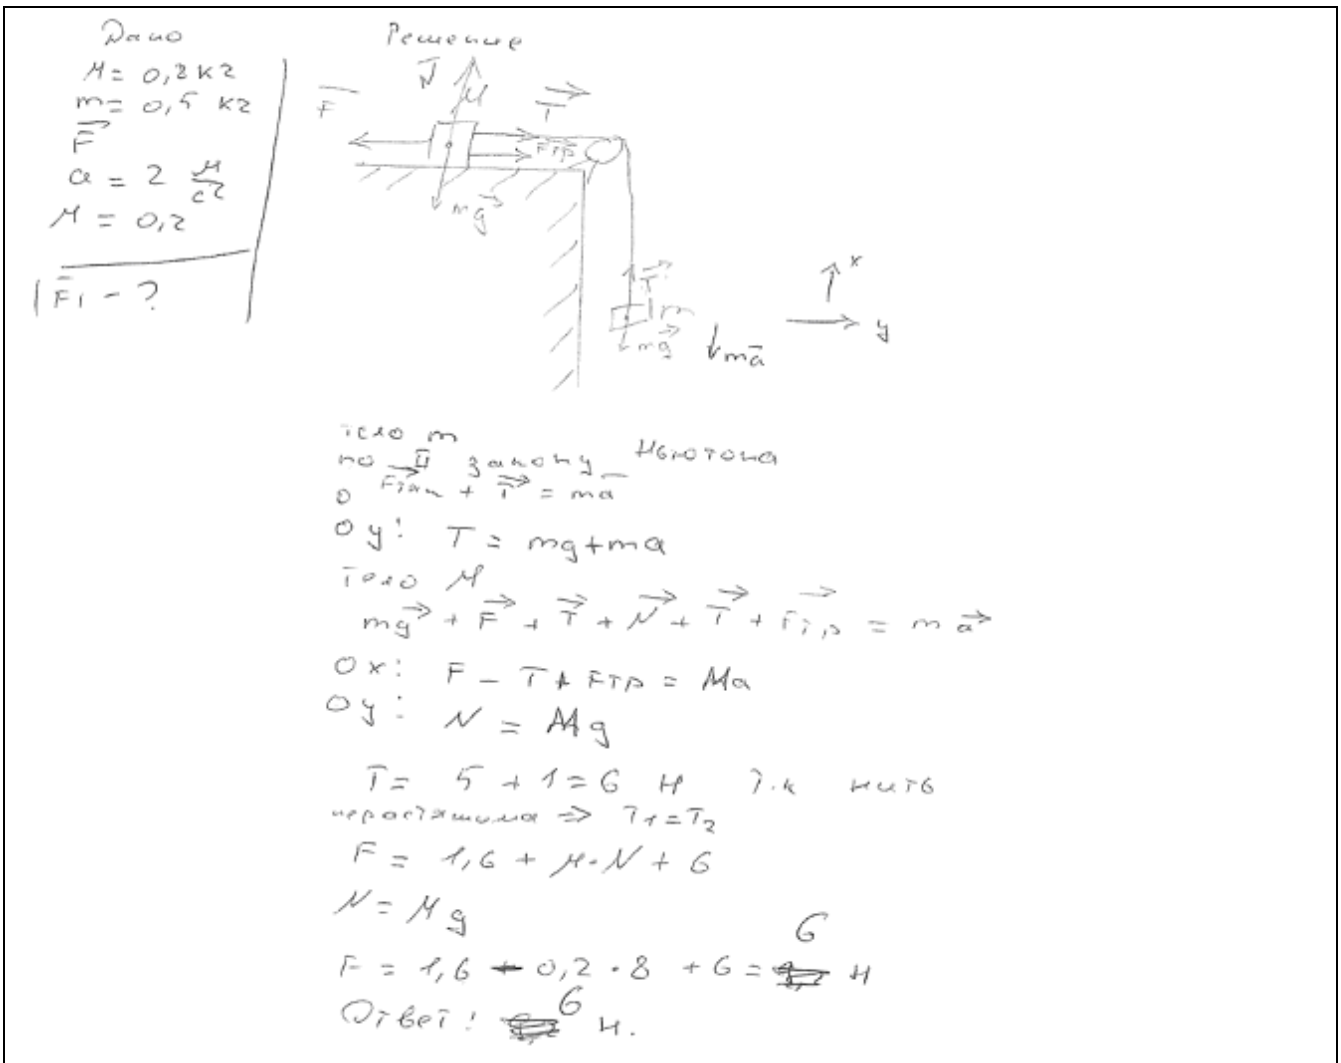 Дано
M = 0,8 кг
m = 0,5 кг
F
a = 2 м/с²
μ = 0,2
|F| - ?
Решение
N
M
F
T
Fтр
mg
T
m
mg
ma
x
y
тело m
по II закону Ньютона
0 Fтяж + T = ma
Oy: T = mg+ma
тело M
mg + F + T + N + T + Fтр = ma
Ox: F - T + Fтр = Ma
Oy: N = Mg
T = 5 + 1 = 6 Н т.к нить
нерастяжима => T1=T2
F = 1,6 + μ·N + 6
N = Mg
F = 1,6 - 0,2 · 8 + 6 = 6 Н
Ответ: 6 Н.